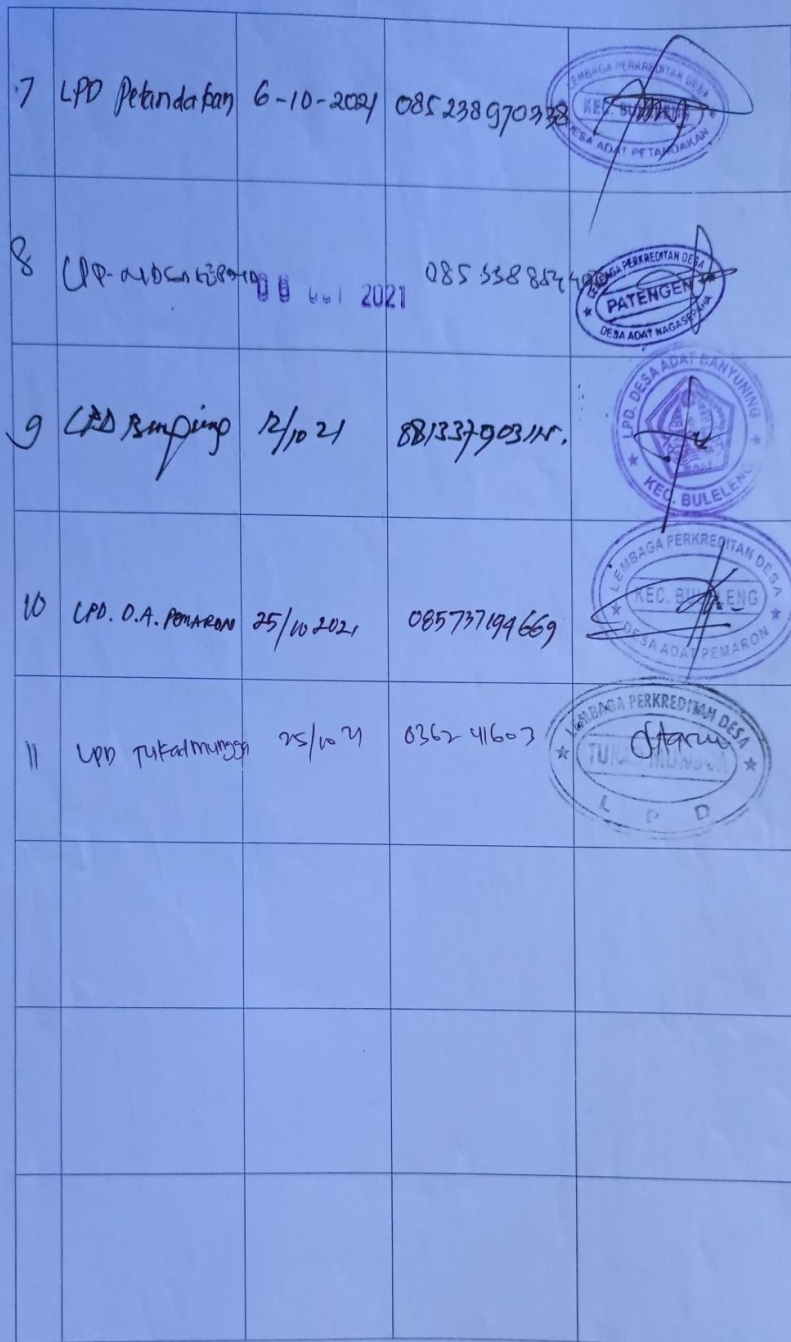 7 LPD Petandakan 6-10-2021 085238970338
LEMBAGA PERKREDITAN DESA
KEC. BULELENG
DESA ADAT PETANDAKAN
8 2021
LEMBAGA PERKREDITAN DESA
PATENGEN
DESA ADAT NAGASEPAHA
9 LPD 12/10 21
LPD. DESA ADAT BANYUNING
KEC. BULELENG
10 LPD. D.A. PEMARON 25/10 2021 085737194669
LEMBAGA PERKREDITAN DESA
KEC. BULELENG
DESA ADAT PEMARON
11 LPD Tukadmungga 25/10 21 0362-41603
LEMBAGA PERKREDITAN DESA
TUKADMUNGGA
LPD